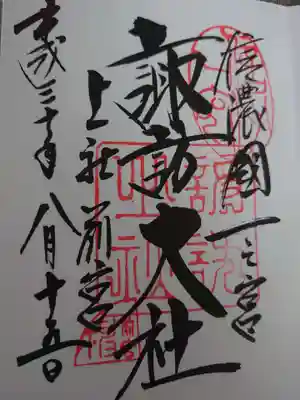 信濃國一之宮
諏訪大社
上社前宮
平成三十年八月十五日